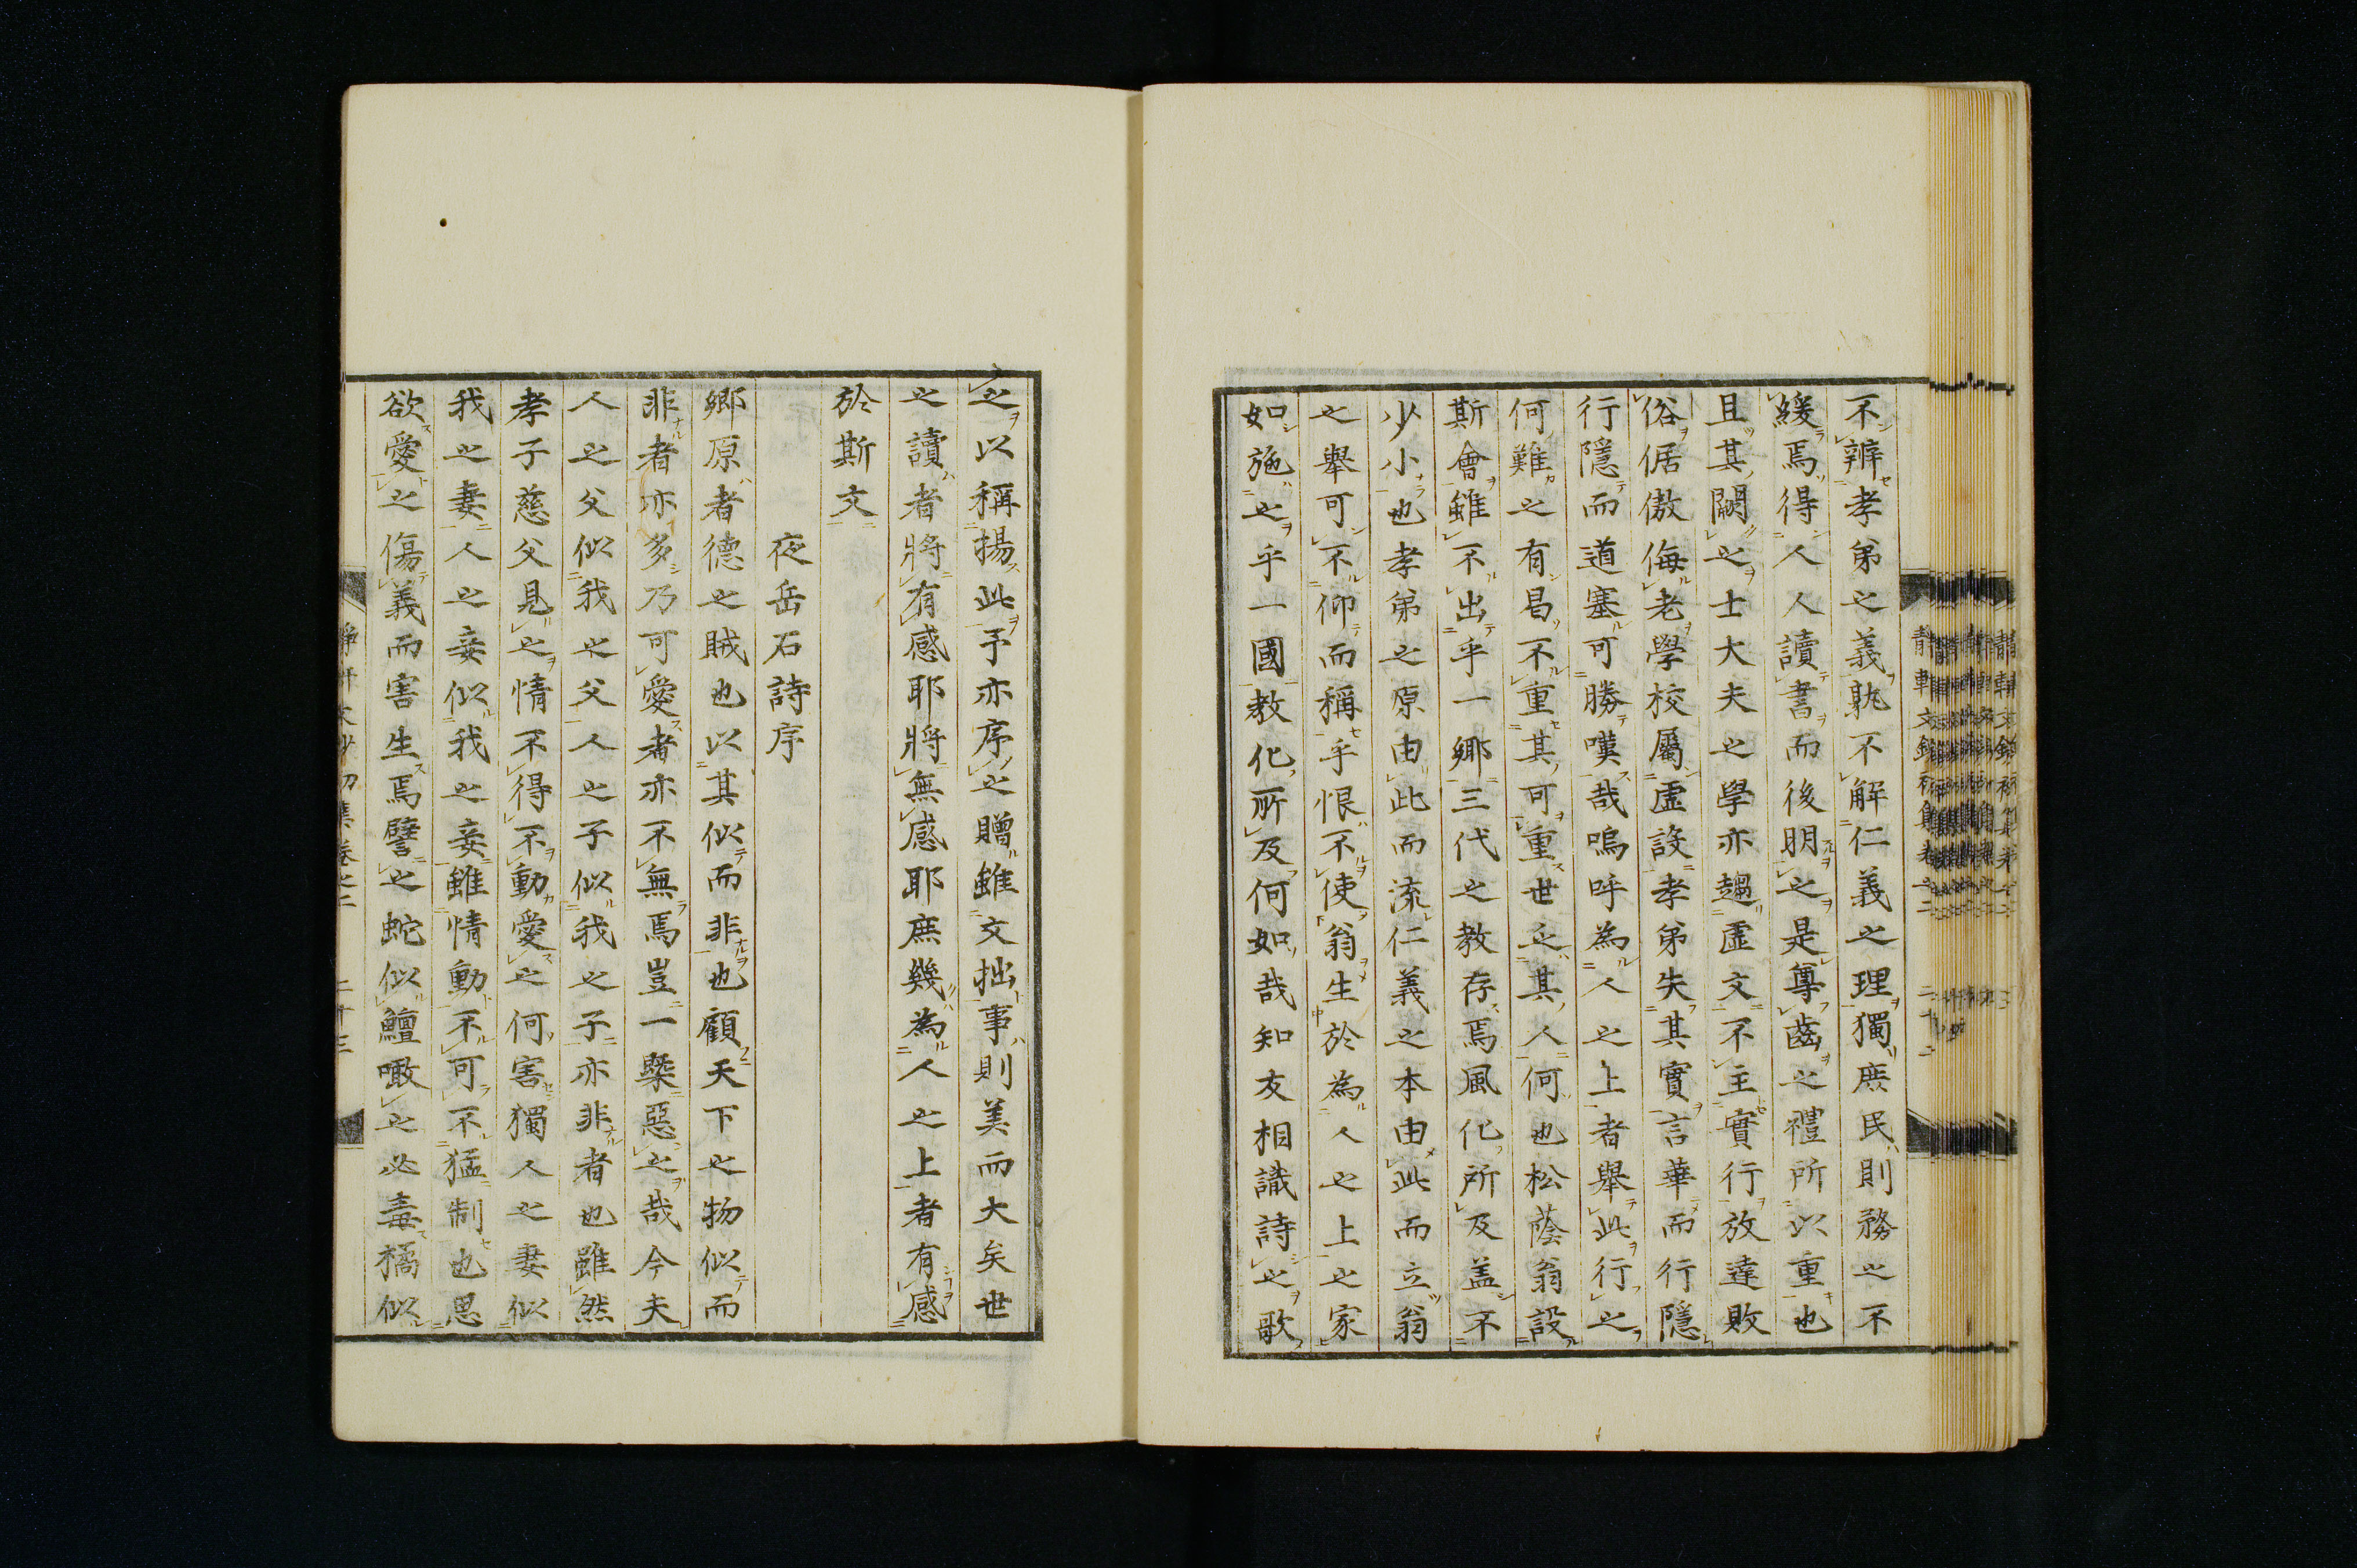 不辨孝弟之義孰不解仁義之理獨庶民則務之不
緩焉得人人讀書而後明之是尊齒之禮所以重也
且其闕之士大夫之學亦趨虛文不主實行放達敗
俗倨傲侮老學校屬虛設孝弟失其實言華而行隱
行隱而道塞可勝嘆哉嗚呼為人之上者舉此行之
何難之有曷不重其可重世之其人何也松蔭翁設
斯會雖不出乎一鄉三代之教存焉風化所及盖不
少小也孝弟之原由此而流仁義之本由此而立翁
之舉可不仰而稱乎恨不使翁生於為人之上之家
如施之乎一國教化所及何如哉知友相識詩之歌
之以稱揚此予亦序之贈雖文拙事則美而大矣世
之讀者將有感耶將無感耶庶幾為人之上者有感
於斯文
夜岳石詩序
鄉原者德之賊也以其似而非也顧天下之物似而
非者亦多乃可愛者亦不無焉豈一槩惡之哉今夫
人之父似我之父人之子似我之子亦非者也雖然
孝子慈父見之情不得不動愛之何害獨人之妻似
我之妻人之妾似我之妾雖情動不可不猛制也思
欲愛之傷義而害生焉譬之蛇似鱣噉之必毒橘似
卷之二 二十三